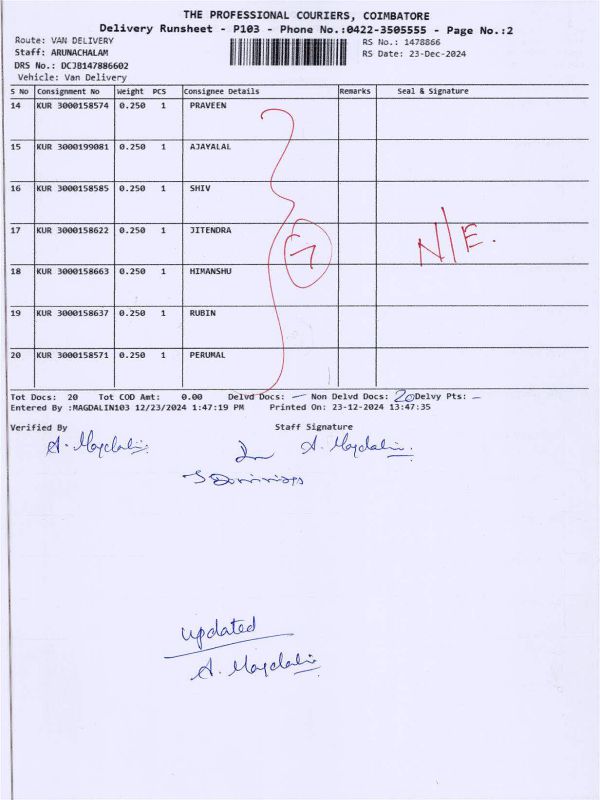 THE PROFESSIONAL COURIERS, COIMBATORE
Delivery Runsheet - P103 - Phone No.:0422-3505555 - Page No.:2
Route: VAN DELIVERY RS No.: 1478866
Staff: ARUNACHALAM RS Date: 23-Dec-2024
DRS No.: DCJB147886602
Vehicle: Van Delivery
S No Consignment No Weight PCS Consignee Details Remarks Seal & Signature
14 KUR 3000158574 0.250 1 PRAVEEN
15 KUR 3000199081 0.250 1 AJAYALAL
16 KUR 3000158585 0.250 1 SHIV
17 KUR 3000158622 0.250 1 JITENDRA
7 N/E.
18 KUR 3000158663 0.250 1 HIMANSHU
19 KUR 3000158637 0.250 1 RUBIN
20 KUR 3000158571 0.250 1 PERUMAL
Tot Docs: 20 Tot COD Amt: 0.00 Delvd Docs: — Non Delvd Docs: 20 Delvy Pts: —
Entered By :MAGDALIN103 12/23/2024 1:47:19 PM Printed On: 23-12-2024 13:47:35
Verified By Staff Signature
A. Magdalin. A. Magdalin.
updated
A. Magdalin